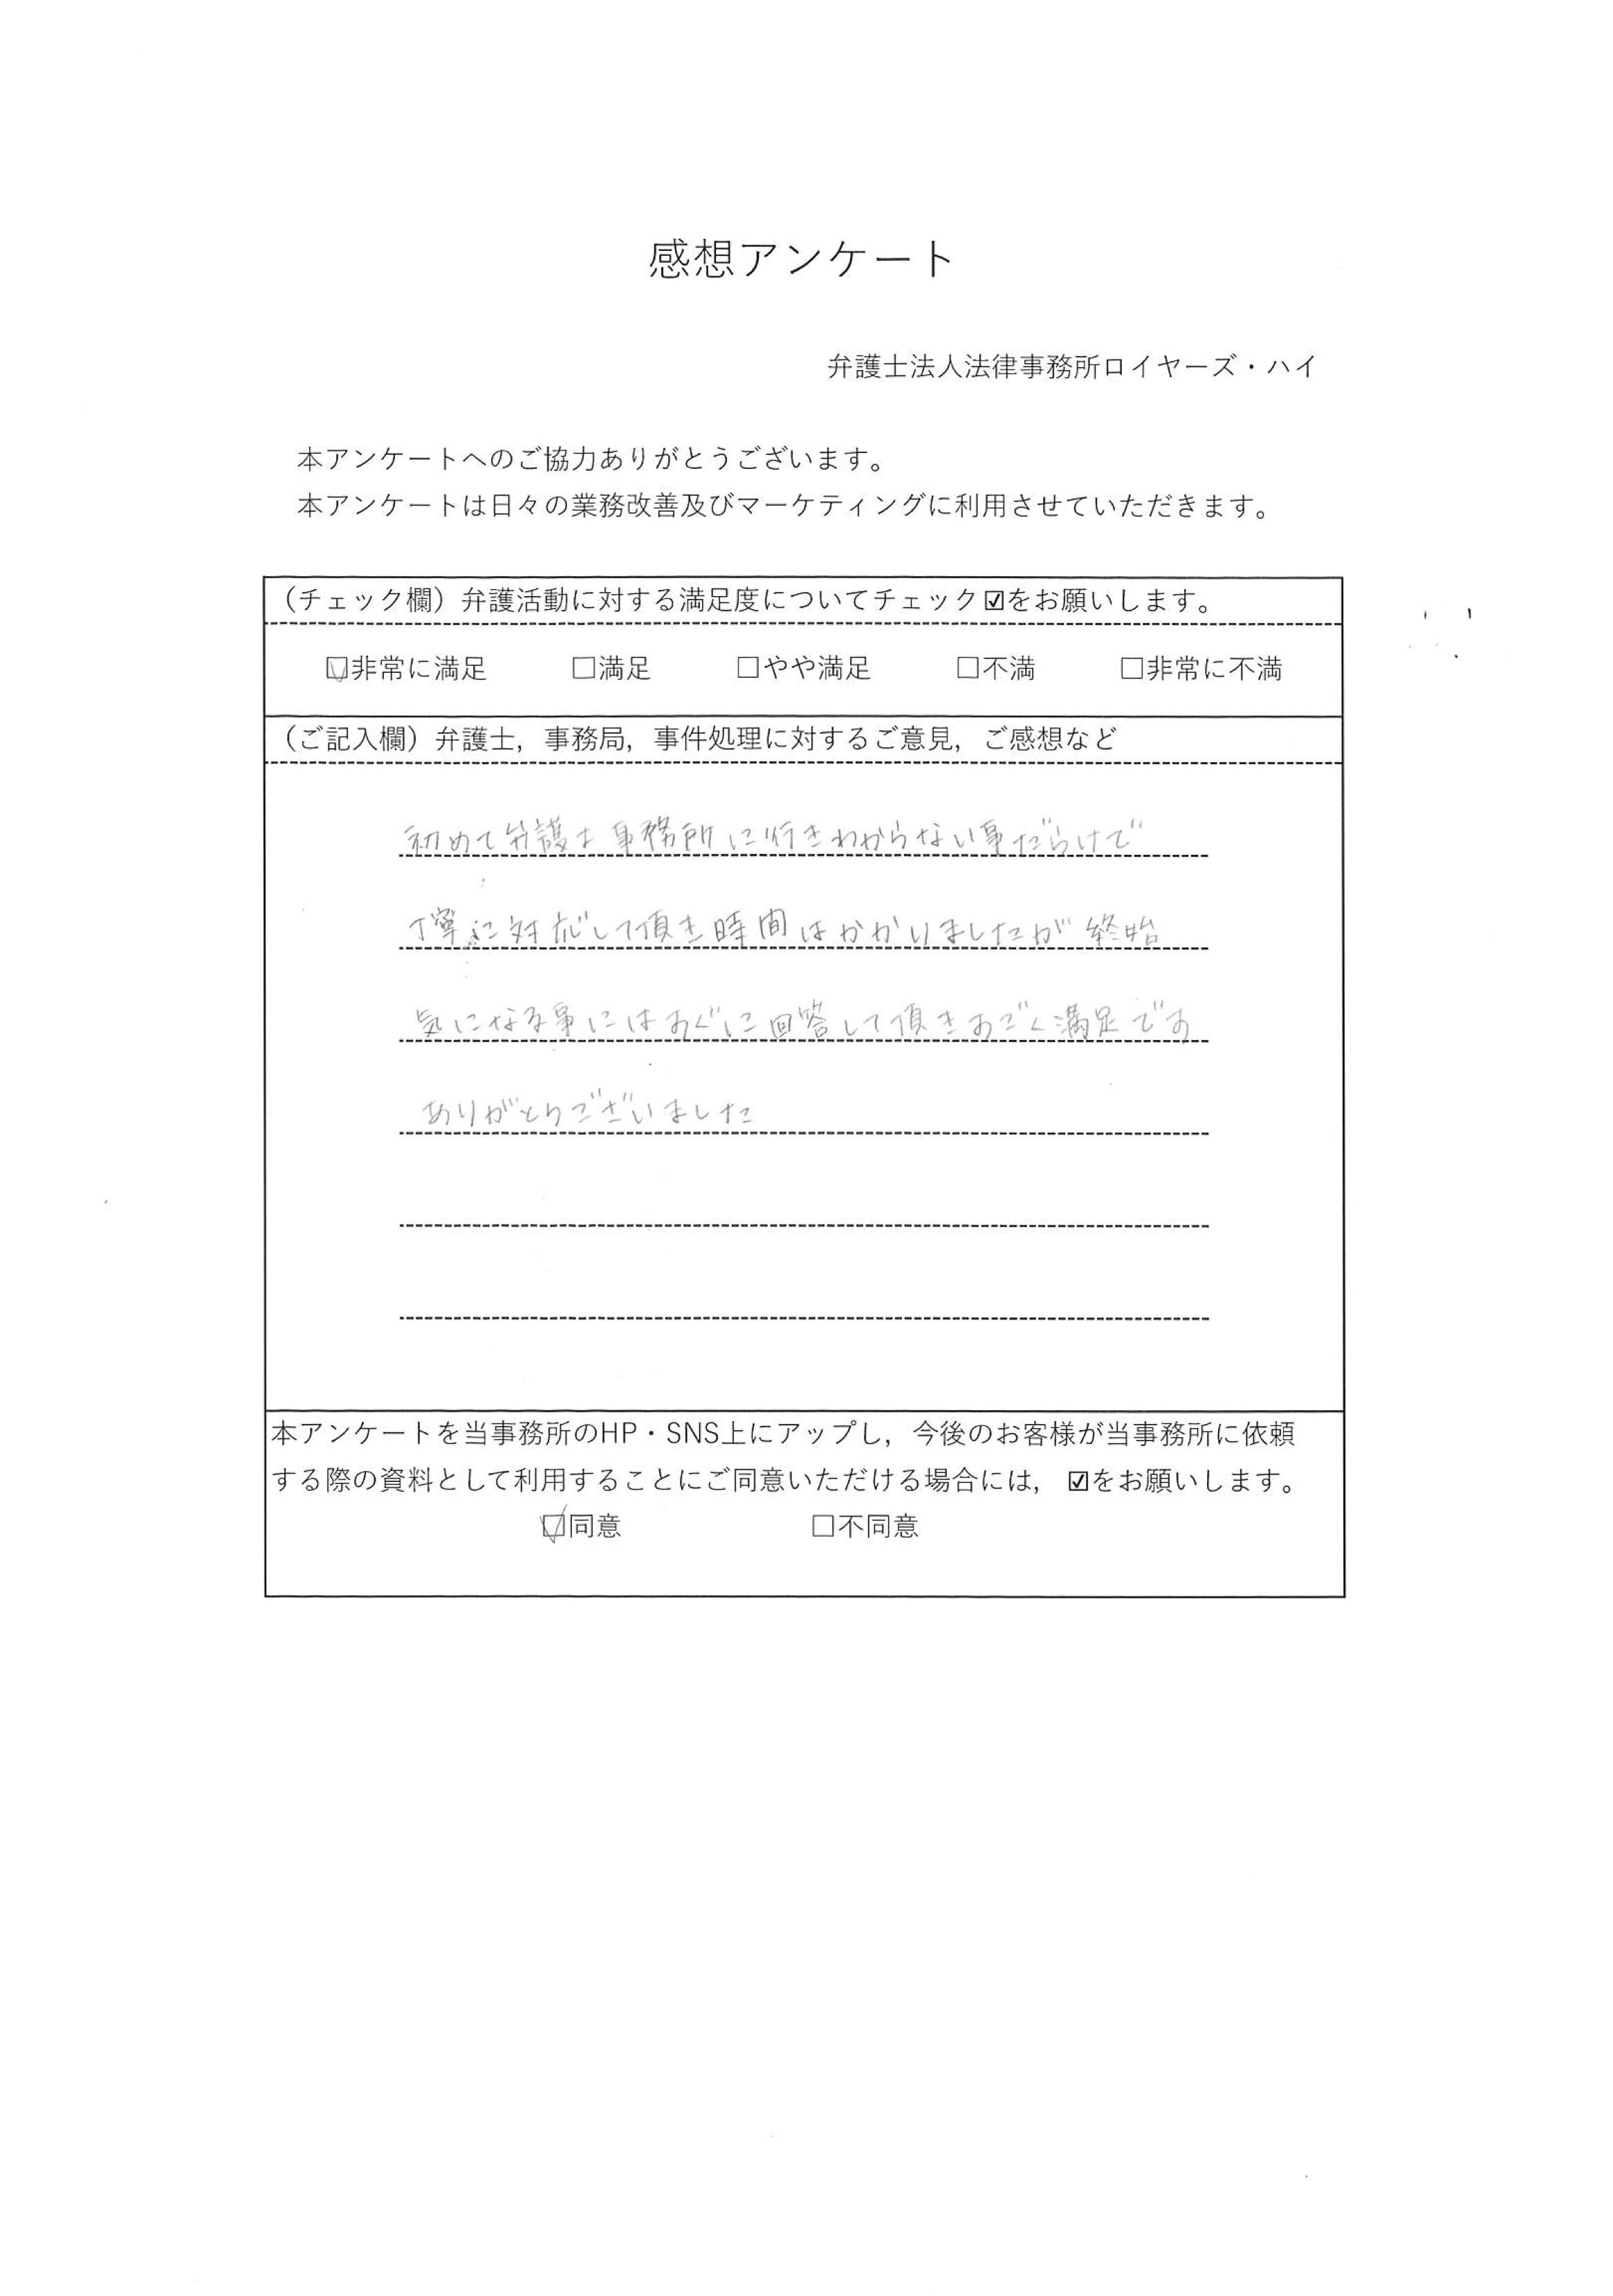 感想アンケート
弁護士法人法律事務所ロイヤーズ・ハイ
本アンケートへのご協力ありがとうございます。
本アンケートは日々の業務改善及びマーケティングに利用させていただきます。
（チェック欄）弁護活動に対する満足度についてチェック☑をお願いします。
☑非常に満足 □満足 □やや満足 □不満 □非常に不満
（ご記入欄）弁護士，事務局，事件処理に対するご意見，ご感想など
初めて弁護士事務所に行きわからない事だらけで
丁寧に対応して頂き時間はかかりましたが終始
気になる事にはすぐに回答して頂きすごく満足です
ありがとうございました
本アンケートを当事務所のHP・SNS上にアップし，今後のお客様が当事務所に依頼
する際の資料として利用することにご同意いただける場合には，☑をお願いします。
☑同意 □不同意